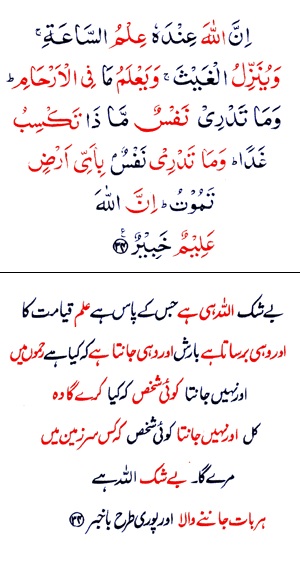 اِنَّ اللّٰهَ عِنْدَهٗ عِلْمُ السَّاعَةِ ۚ
وَيُنَزِّلُ الْغَيْثَ ۚ وَيَعْلَمُ مَا فِى الْاَرْحَامِ ؕ
وَمَا تَدْرِىْ نَفْسٌ مَّا ذَا تَكْسِبُ
غَدًا ؕ وَمَا تَدْرِىْ نَفْسٌۢ بِاَىِّ اَرْضٍ
تَمُوْتُ ؕ اِنَّ اللّٰهَ
عَلِيْمٌ خَبِيْرٌ ﴿۳۴﴾
بے شک اللہ ہی ہے جس کے پاس ہے علم قیامت کا
اور وہی برساتا ہے بارش اور وہی جانتا ہے کہ کیا ہے رحموں میں
اور نہیں جانتا کوئی شخص کہ کیا کرے گا وہ
کل اور نہیں جانتا کوئی شخص کہ کس سر زمین میں
مرے گا۔ بے شک اللہ ہے
ہر بات جاننے والا اور پوری طرح باخبر ﴿۳۴﴾